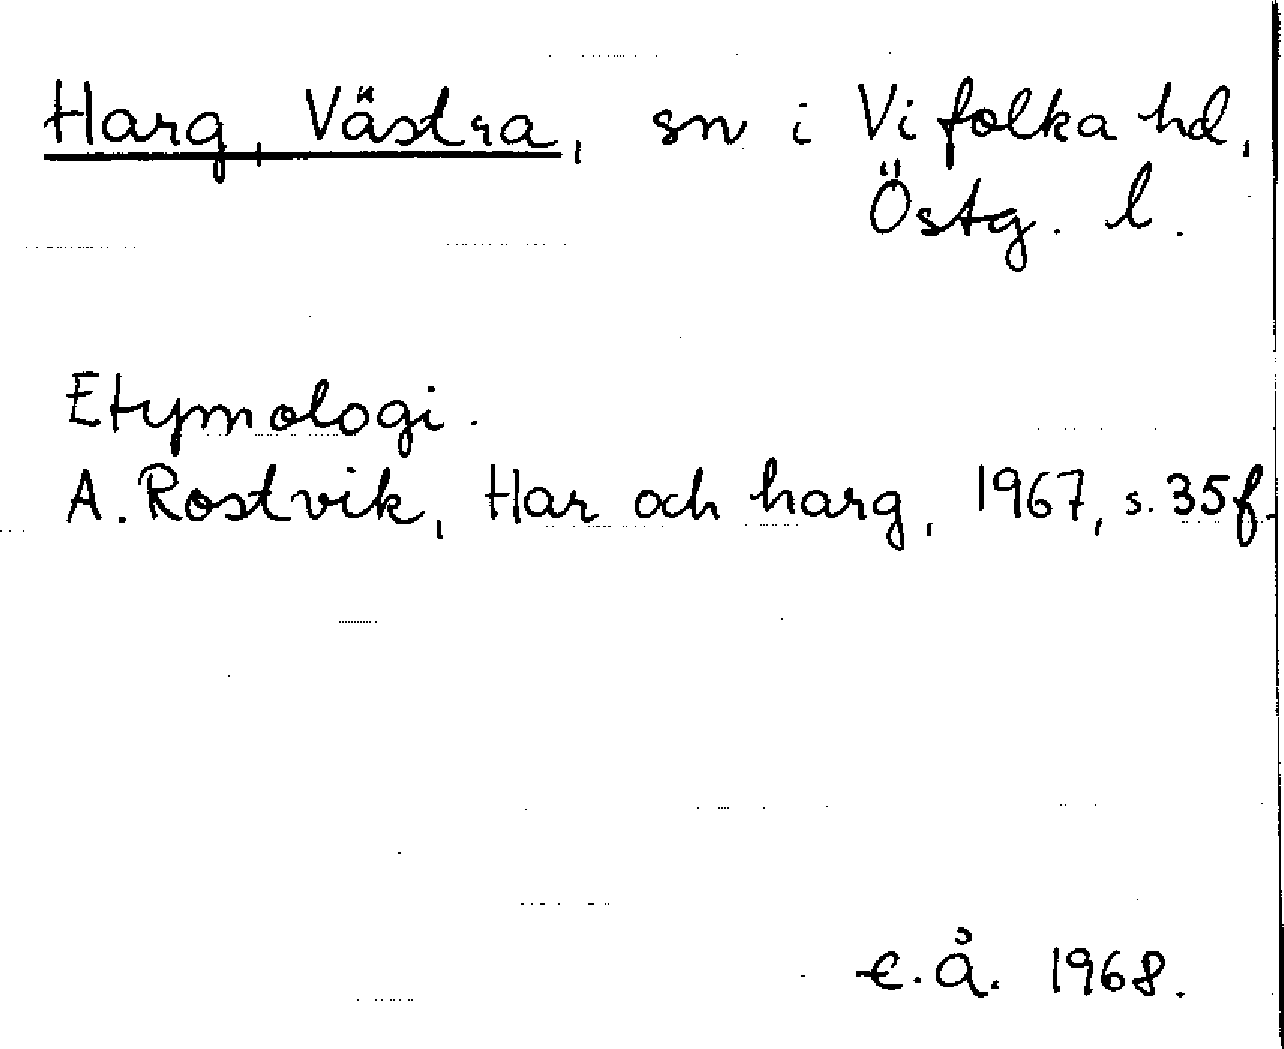 Harg, Västra, sn i Vifolka hd,
Östg. l.
Etymologi.
A. Rostvik, Har och harg, 1967, s. 35f.
E.Å. 1968.